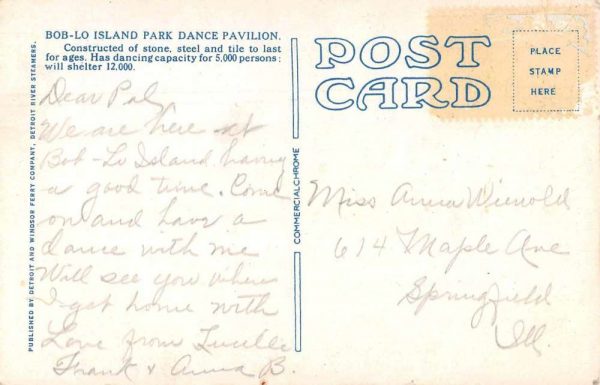 BOB-LO ISLAND PARK DANCE PAVILION.
Constructed of stone, steel and tile to last
for ages. Has dancing capacity for 5,000 persons;
will shelter 12,000.
Dear Pal,
We are here at
Bob-Lo Island having
a good time. Come
on and have a
dance with me
Will see you when
I get home with
Love from Lucille
Frank & Anna B.
PUBLISHED BY DETROIT AND WINDSOR FERRY COMPANY, DETROIT RIVER STEAMERS.
COMMERCIALCHROME
POST
CARD
PLACE
STAMP
HERE
Miss Anna Wienold
614 Maple Ave
Springfield
Ill.